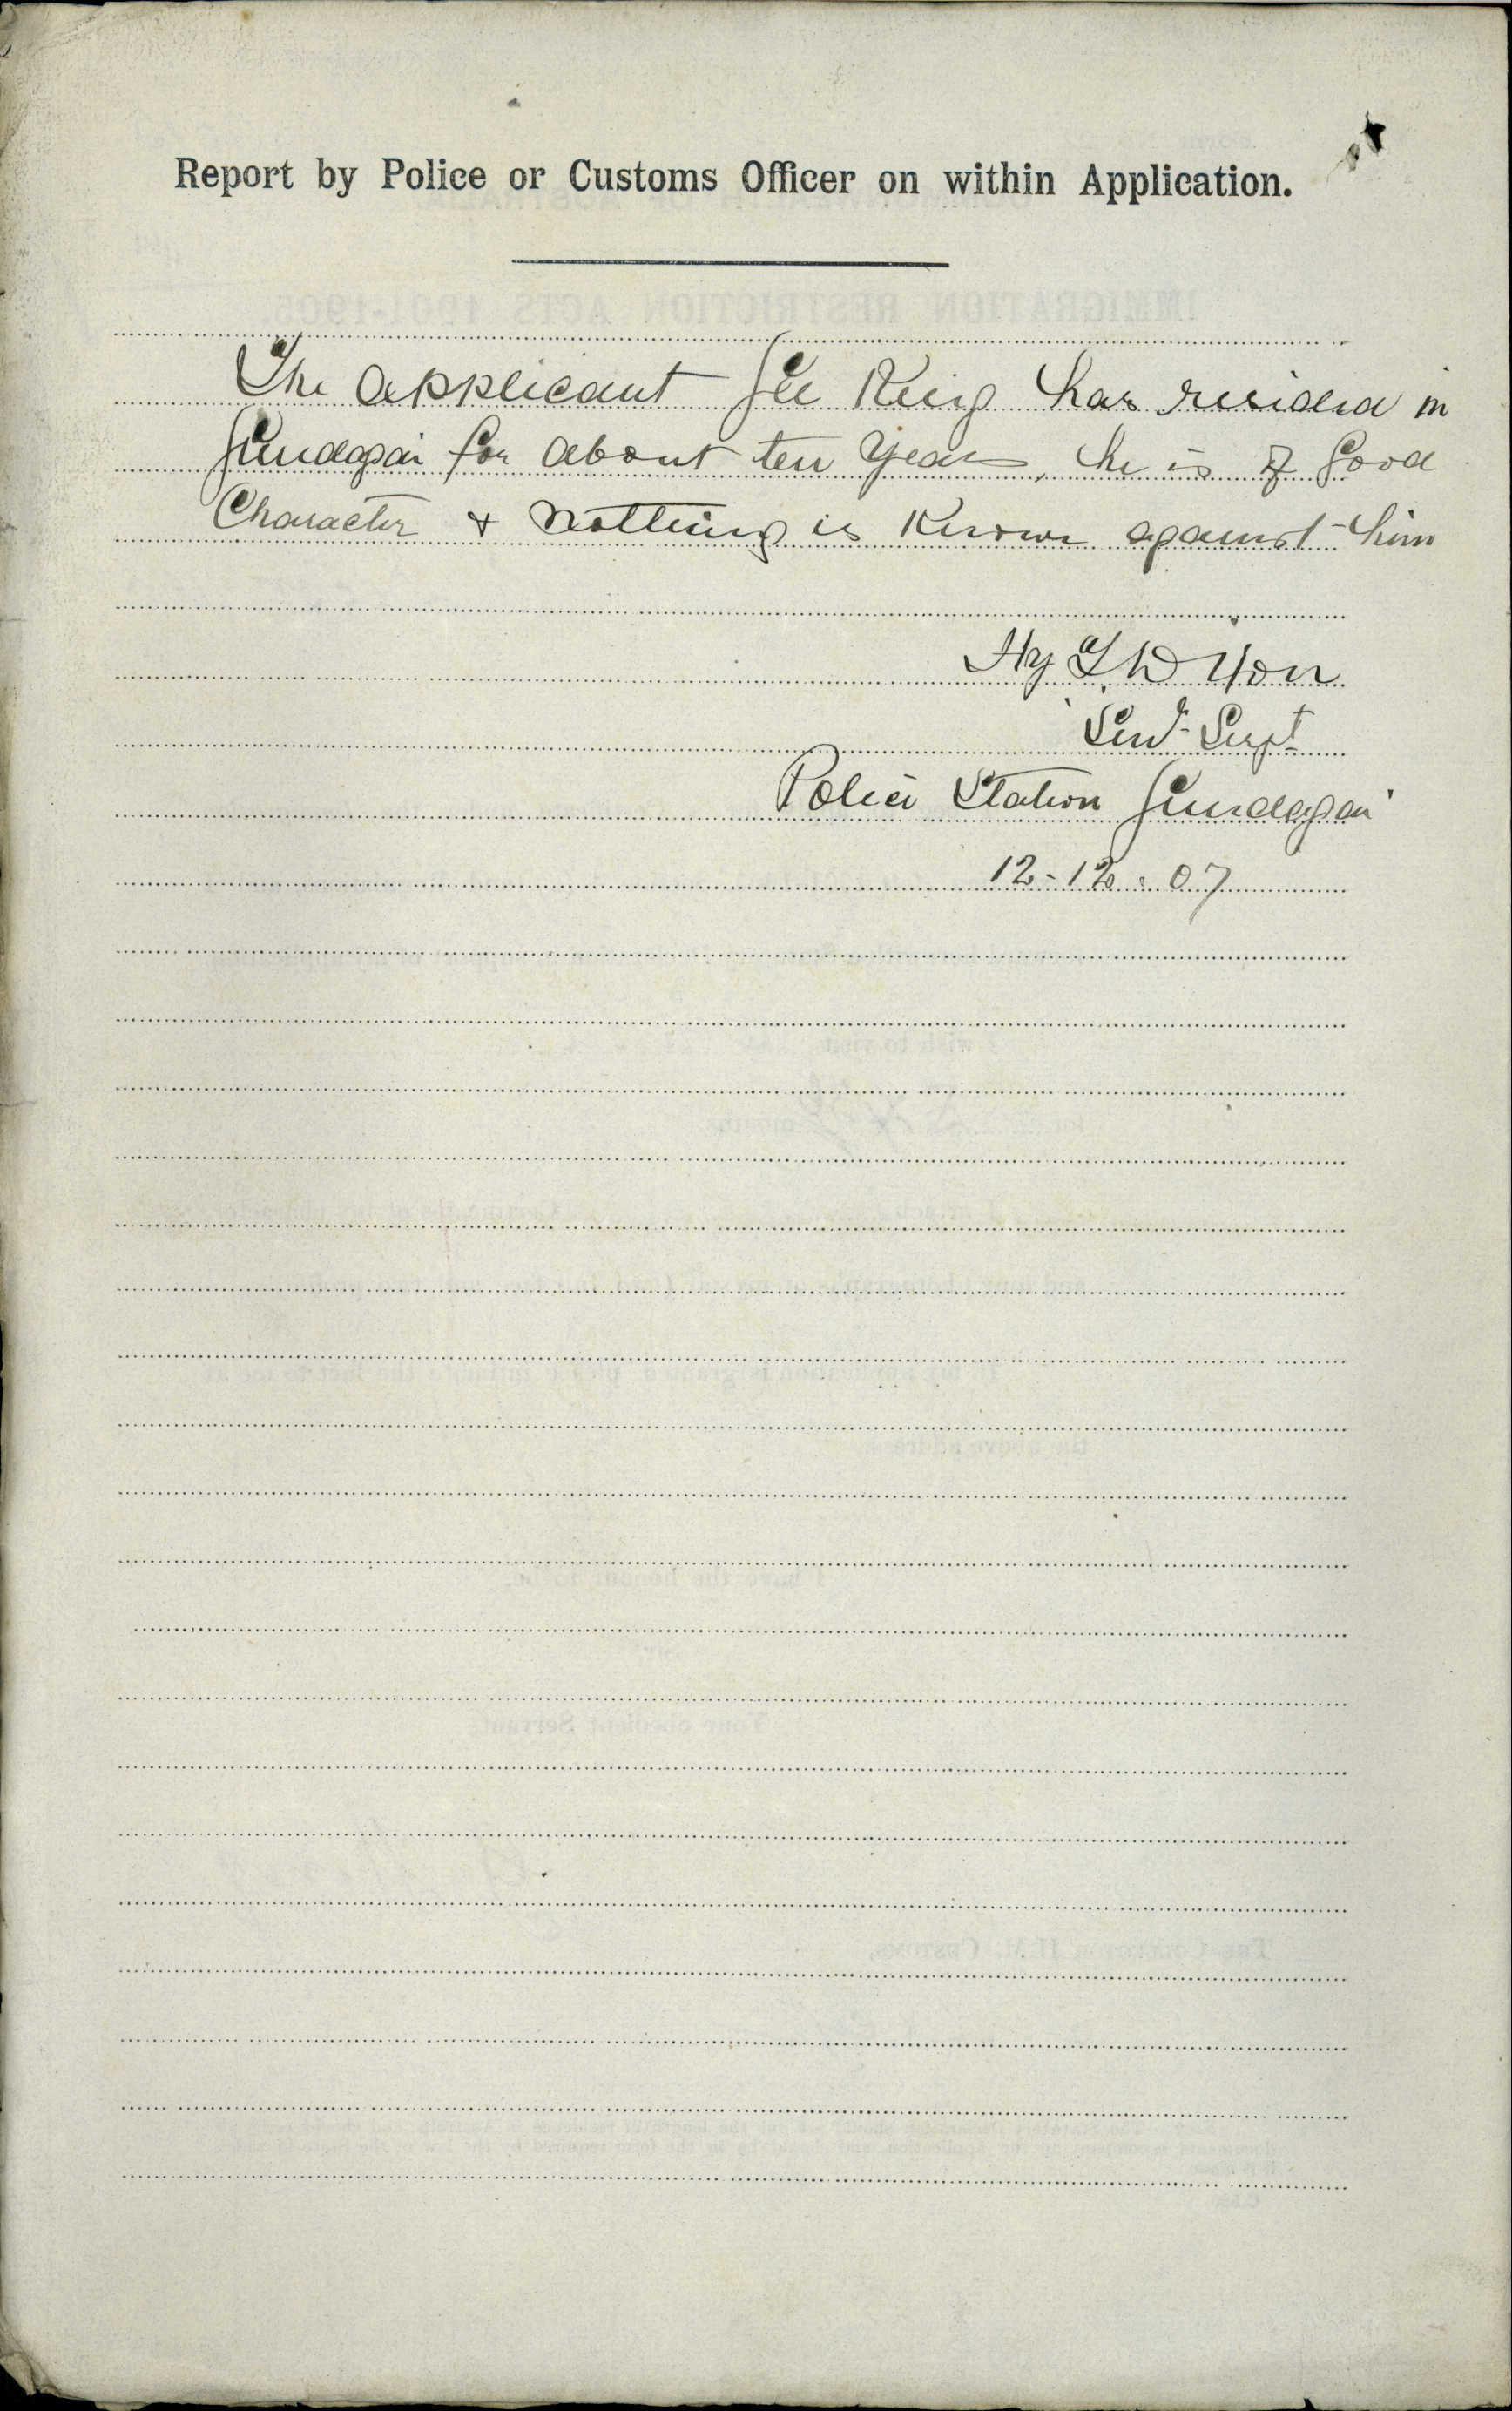 Report by Police or Customs Officer on within Application.
The applicant Gee King has resided in
Gundagai for about ten years, he is of Good
Character & nothing is Known against him
Senr Sergt
Police Station Gundagai
12-12-07